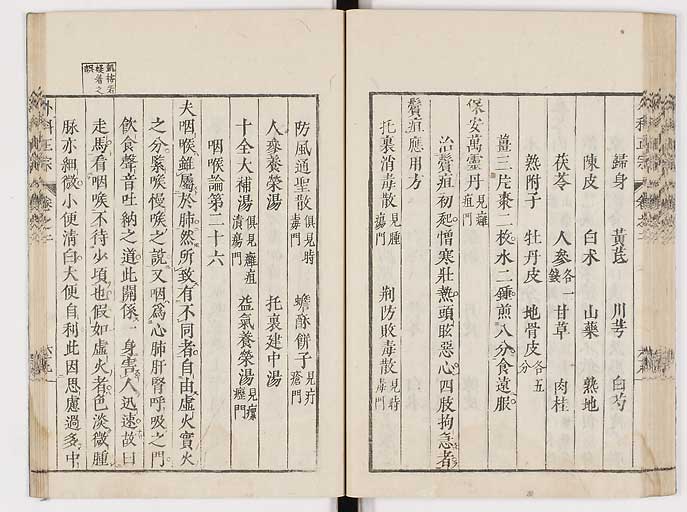 歸身 黃芪 川芎 白芍
陳皮 白朮 山藥 熟地
茯苓 人參各一錢 甘草 肉桂
熟附子 牡丹皮 地骨皮各五分
薑三片棗二枚水二鍾煎八分食遠服
保安萬靈丹見癰疽門
治鬢疽初起憎寒壯熱頭眩惡心四肢拘急者
鬢疽應用方
托裏消毒散見腫瘍門 荊防敗毒散見時毒門
防風通聖散見時毒門 蟾酥餅子見疔瘡門
人參養榮湯 托裏建中湯
十全大補湯俱見癰疽潰瘍門 益氣養榮湯見瘰癧門
咽喉論第二十六
夫咽喉雖屬於肺然所致有不同者自由虛火實火
之分緊喉慢喉之說又咽為心肺肝腎呼吸之門
飲食聲音吐納之道此關係一身害人迅速故曰
走馬看咽喉不待少頃也假如虛火者色淡微腫
脉亦細微小便清白大便自利此因思慮過多中
外科正宗 卷之二